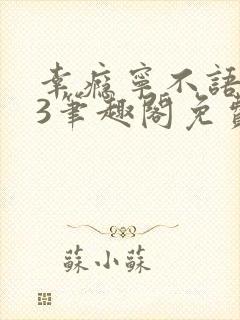 幸瘾寧不語
3筆趣閣免費
蘇小蘇